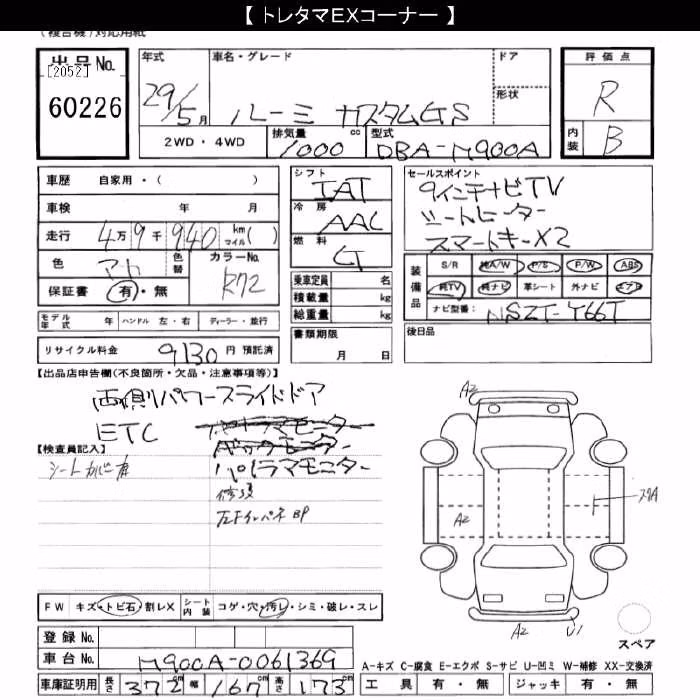 【 トレタマEXコーナー 】
(複合機)対応用紙
出品No.
[2052]
60226
年式
29/5月
車名・グレード
ルーミー カスタムGS
ドア
形状
評価点
R
内装
B
2WD・4WD
排気量
1000
cc
型式
DBA-M900A
車歴
自家用・( )
車検
年 月
走行
4万9千940
km
マイル( )
色
色替
カラーNo.
R72
保証書
有・無
モデル年式
年
ハンドル
左・右
ディーラー・並行
リサイクル料金
9130円 預託済
シフト
IAT
冷房
AAC
燃料
G
乗車定員
名
積載量
kg
総重量
kg
書類期限
月 日
セールスポイント
9インチナビTV
シートヒーター
スマートキーX2
装備品
S/R
純A/W
P/S
P/W
ABS
純TV
純ナビ
革シート
外ナビ
エアB
ナビ型番:
NSZT-Y66T
後日品
【出品店申告欄(不良箇所・欠品・注意事項等)】
両側パワースライドドア
ETC
パノラマモニター
【検査員記入】
シートカバー有
修復
左Fインパネ BP
A2
スリA
A2
A2
U1
スペア
FW
キズ・トビ石・割レX
シート内装
コゲ・穴・汚レ・シミ・破レ・スレ
登録No.
車台No.
M900A-0061369
車庫証明用
長さ
372cm
幅
167cm
高さ
173cm
A-キズ C-腐食 E-エクボ S-サビ U-凹ミ W-補修 XX-交換済
工具
有・無
ジャッキ
有・無